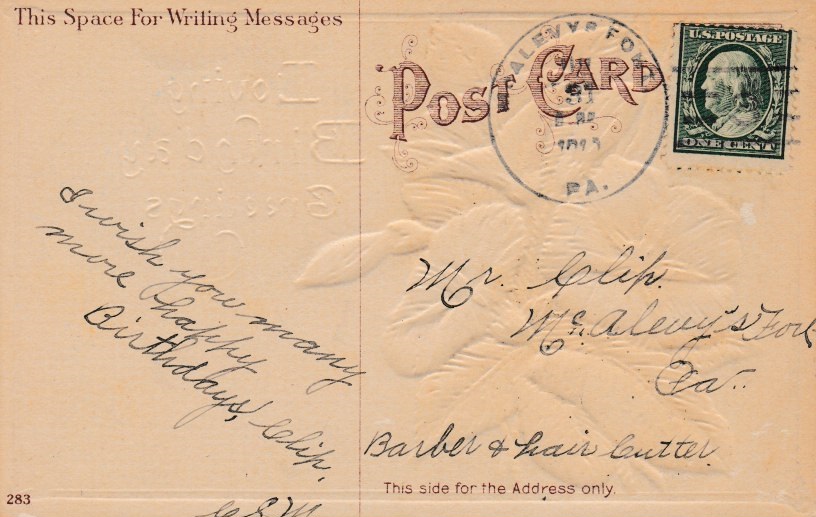 This Space For Writing Messages
POST CARD
ALEVYS FORT
31
PA.
U.S. POSTAGE
ONE CENT
Loving
Birthday
Greetings
I wish you many
more happy
Birthdays, Clip.
Mr. Clip.
Mc Alevy's Fort
Pa.
Barber & hair Cutter
This side for the Address only.
283